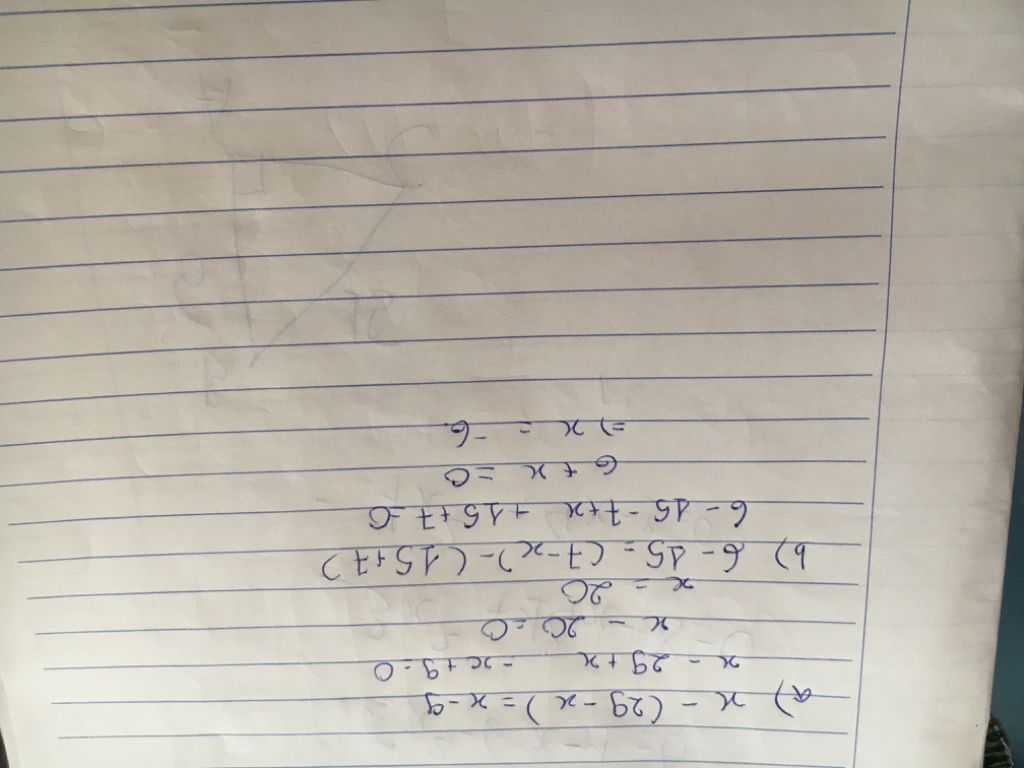 a) x - (29 - x) = x - 9
x - 29 + x - x + 9 = 0
x - 20 = 0
x = 20
b) 6 - 15 = (7 - x) - (15 + 7)
6 - 15 - 7 + x + 15 + 7 = 0
6 + x = 0
=> x = -6.